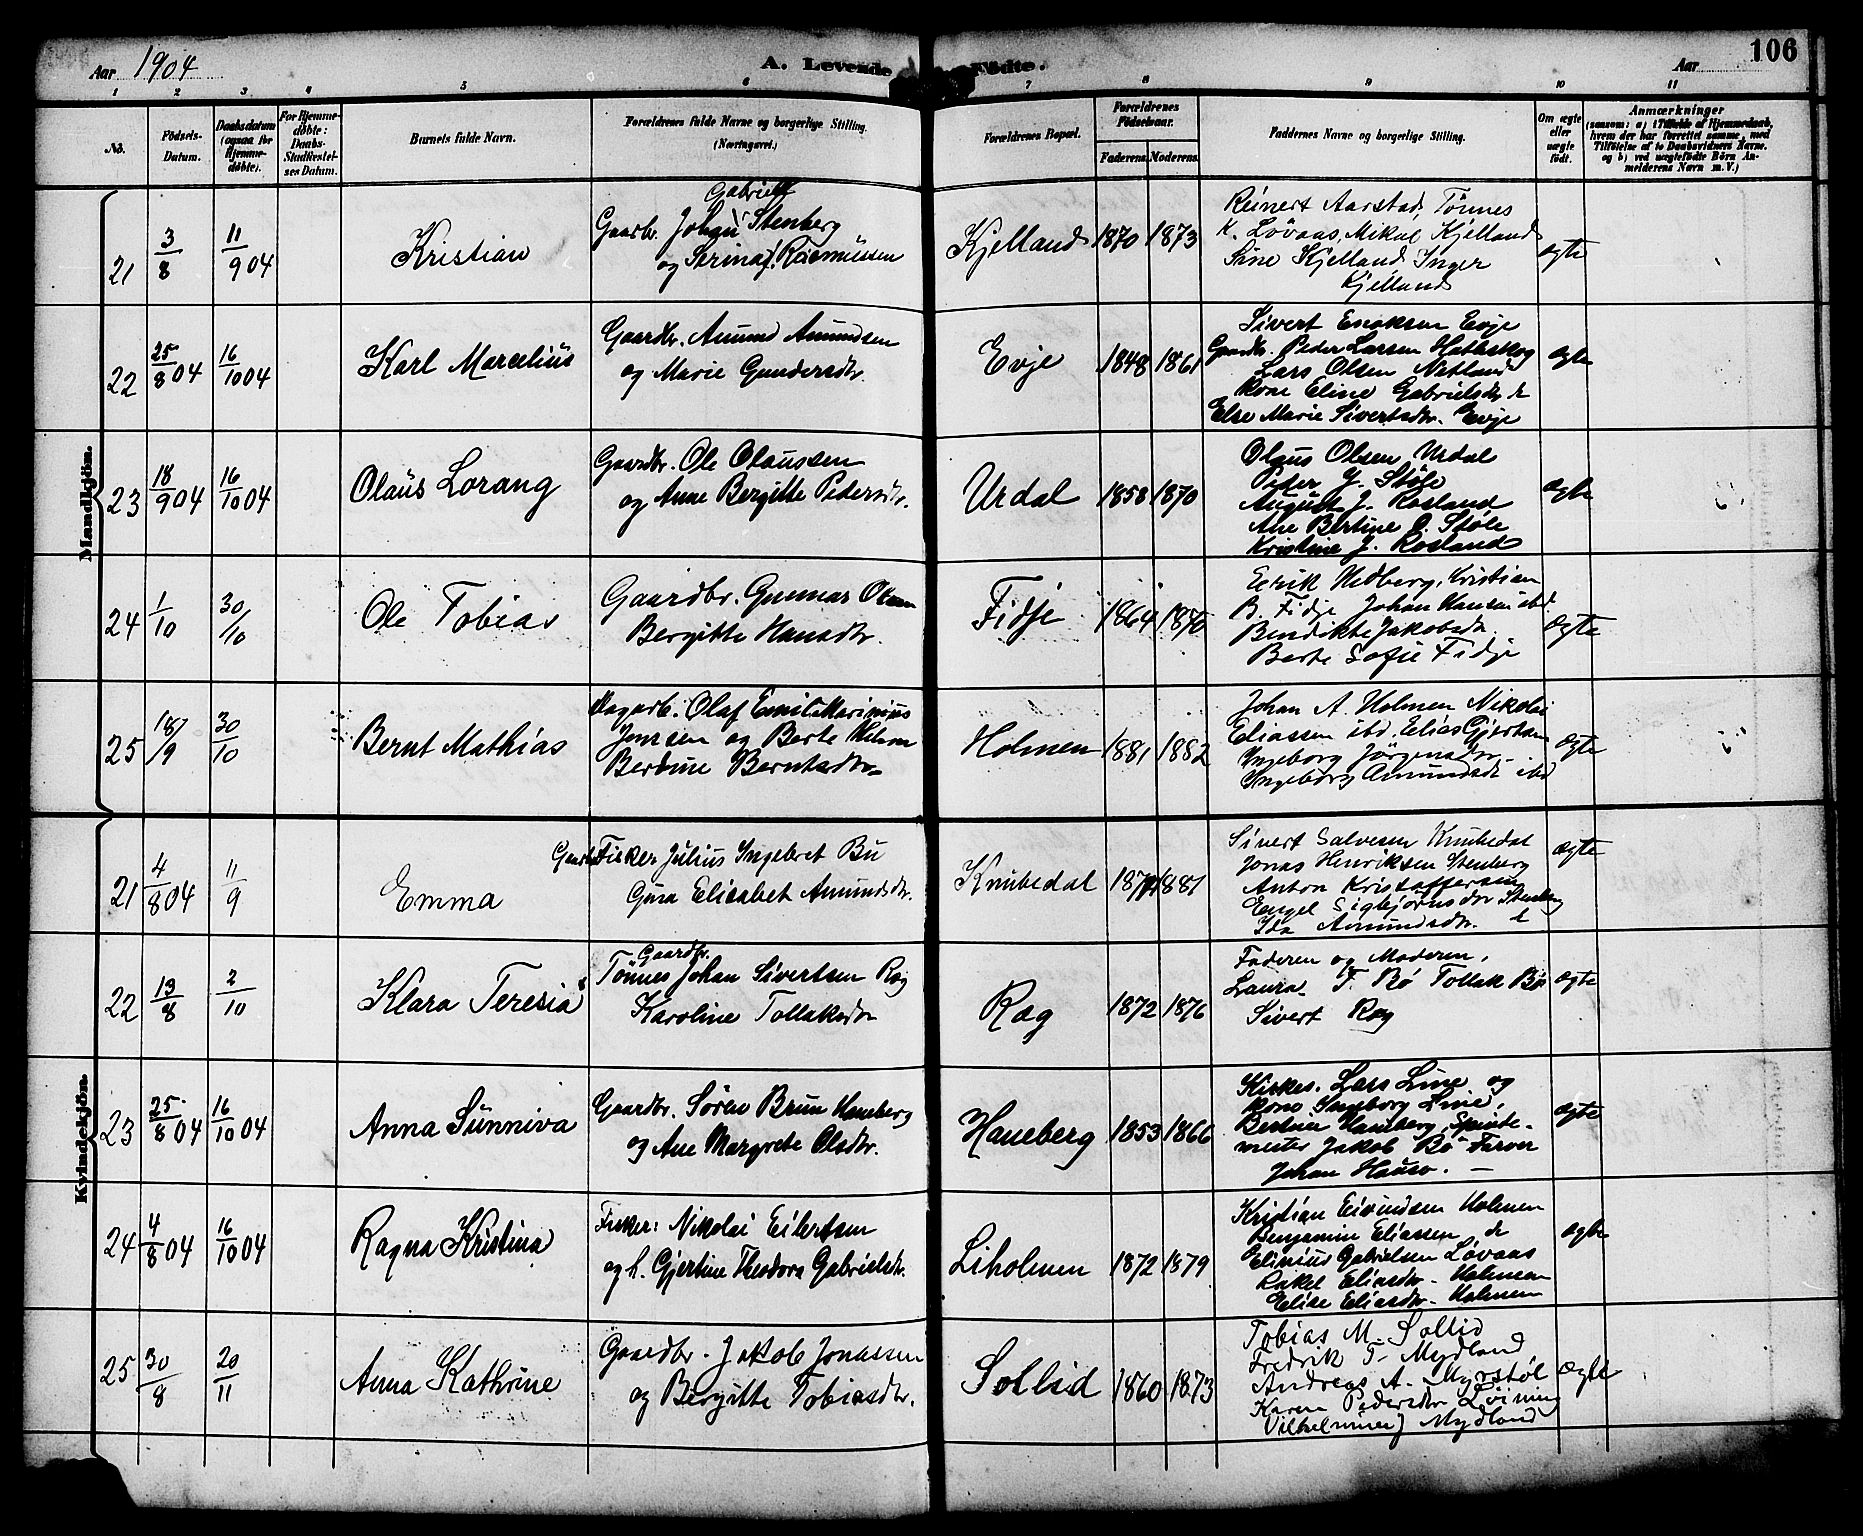 Aar 1904
A. Levende Födte.
Aar
106
1 2 3 4 5 6 7 8 9 10 11
No.
Födsels-Datum.
Daabsdatum (ogsaa for Hjemme-döbte).
For Hjemme-döbte: Daabs-Stadfæstel-ses Datum.
Barnets fulde Navn.
Forældrenes fulde Navne og borgerlige Stilling. (Næringsvei.)
Forældrenes Bopæl.
Forældrenes Födselsaar.
Faderens. Moderens.
Faddernes Navne og borgerlige Stilling.
Om ægte eller uægte födt.
Anmærkninger
(saasom: a) i Tilfælde af Hjemmedaab, hvem der har forrettet samme, med Tilföielse af to Daabsvidners Navne. og b) ved uægtefödte Börn An-melderens Navn m. V.)
Mandkjön.
21 3/8 11/9 04 Kristian
Gabriel
Gaardbr. Johan Stenberg
og Serina f. Rasmussen
Kjelland 1870 1873
Reinert Aarstad, Tönnes
K. Løvaas, Mikal Kjelland
Sine Kjelland Inger
Kjelland
ægte
22 25/8 04 16/10 04 Karl Marcelius
Gaardbr. Amund Amundsen
og Marie Gundersdtr.
Evje 1848 1861
Sivert Eriksen Evje
Gaardbr. Peder Larsen
Lars Olsen Netland
Kone Eline Gabrielsdtr
Else Marie Sivertsdtr. Evje
ægte
23 18/9 04 16/10 04 Olaus Lorang
Gaardbr. Ole Olaussen
og Anne Bergitte Pedersdtr.
Urdal 1858 1870
Olaus Olsen Urdal
Peder J. Støle
August J. Rosland
Ane Bertine O. Støle
Kristine J. Rosland
ægte
24 1/10 30/10 Ole Tobias
Gaardbr. Gunnar Olsen
Bergitte Hansdtr.
Fidje 1864 1870
Eerik Hedberg, Kristian
B. Fidje Johan Hansen ibd
Bendikte Jakobsdtr
Berte Sofie Fidje
ægte
25 18/9 30/10 Bernt Mathias
Dagarb. Olaf Emil Marinius
Jenssen og Berte
Berdine Berntsdtr.
Holmen 1881 1882
Johan A Holmen Nikolai
Eliassen ibd. Elias
Ingeborg Jörgensdtr
Ingeborg Amundsdtr ibd
ægte
Kvindekjön.
21 4/8 04 11/9 Emma
Gaardbr Fisker Julius Ingebret Bu
Gura Elisabet Amundsdtr.
Knubedal 1881
Sivert Salvesen Knubedal
Jonas Henriksen Stenberg
Anton Kristoffersen
Engel Sigbjörnsdtr Stenberg
Ida Amundsdtr.
ægte
22 13/8 2/10 Klara Teresia
Gaardbr.
Tönnes Johan Sivertsen Rag
Karoline Tollaksdtr
Rag 1872 1876
Faderen og Moderen,
Laura T. Bö Tollak Bö
Sivert Rag
ægte
23 25/8 04 16/10 04 Anna Sunniva
Gaardbr. Søren Brun Haneberg
og Ane Margrete Olsdtr.
Haneberg 1853 1866
Kirkes. Lars Line og
kone Ingeborg Line,
Bertine Haneberg,
Jakob Bö Farver
Johan
ægte
24 4/8 04 16/10 04 Ragna Kristina
Fisker: Nikolai Eilertsen
og h. Gjertine Theodora Gabrielsdtr.
Liholmen 1872 1879
Kristian Eivindsen Holmen
Benjamine Eliassen
Elinius Gabrielsen Løvaas
Rakel Eliasdtr. Holmen
Elise Eliasdtr. Holmen
ægte
25 30/8 20/11 Anna Kathrine
Gaardbr. Jakob Jonassen
og Bergitte Tobiasdtr.
Sollid 1860 1873
Tobias M. Sollid
Fredrik T. Mydland
Andreas A. Myrstöl
Karen Pedersdtr Løining
Vilhelmine J Mydland
ægte